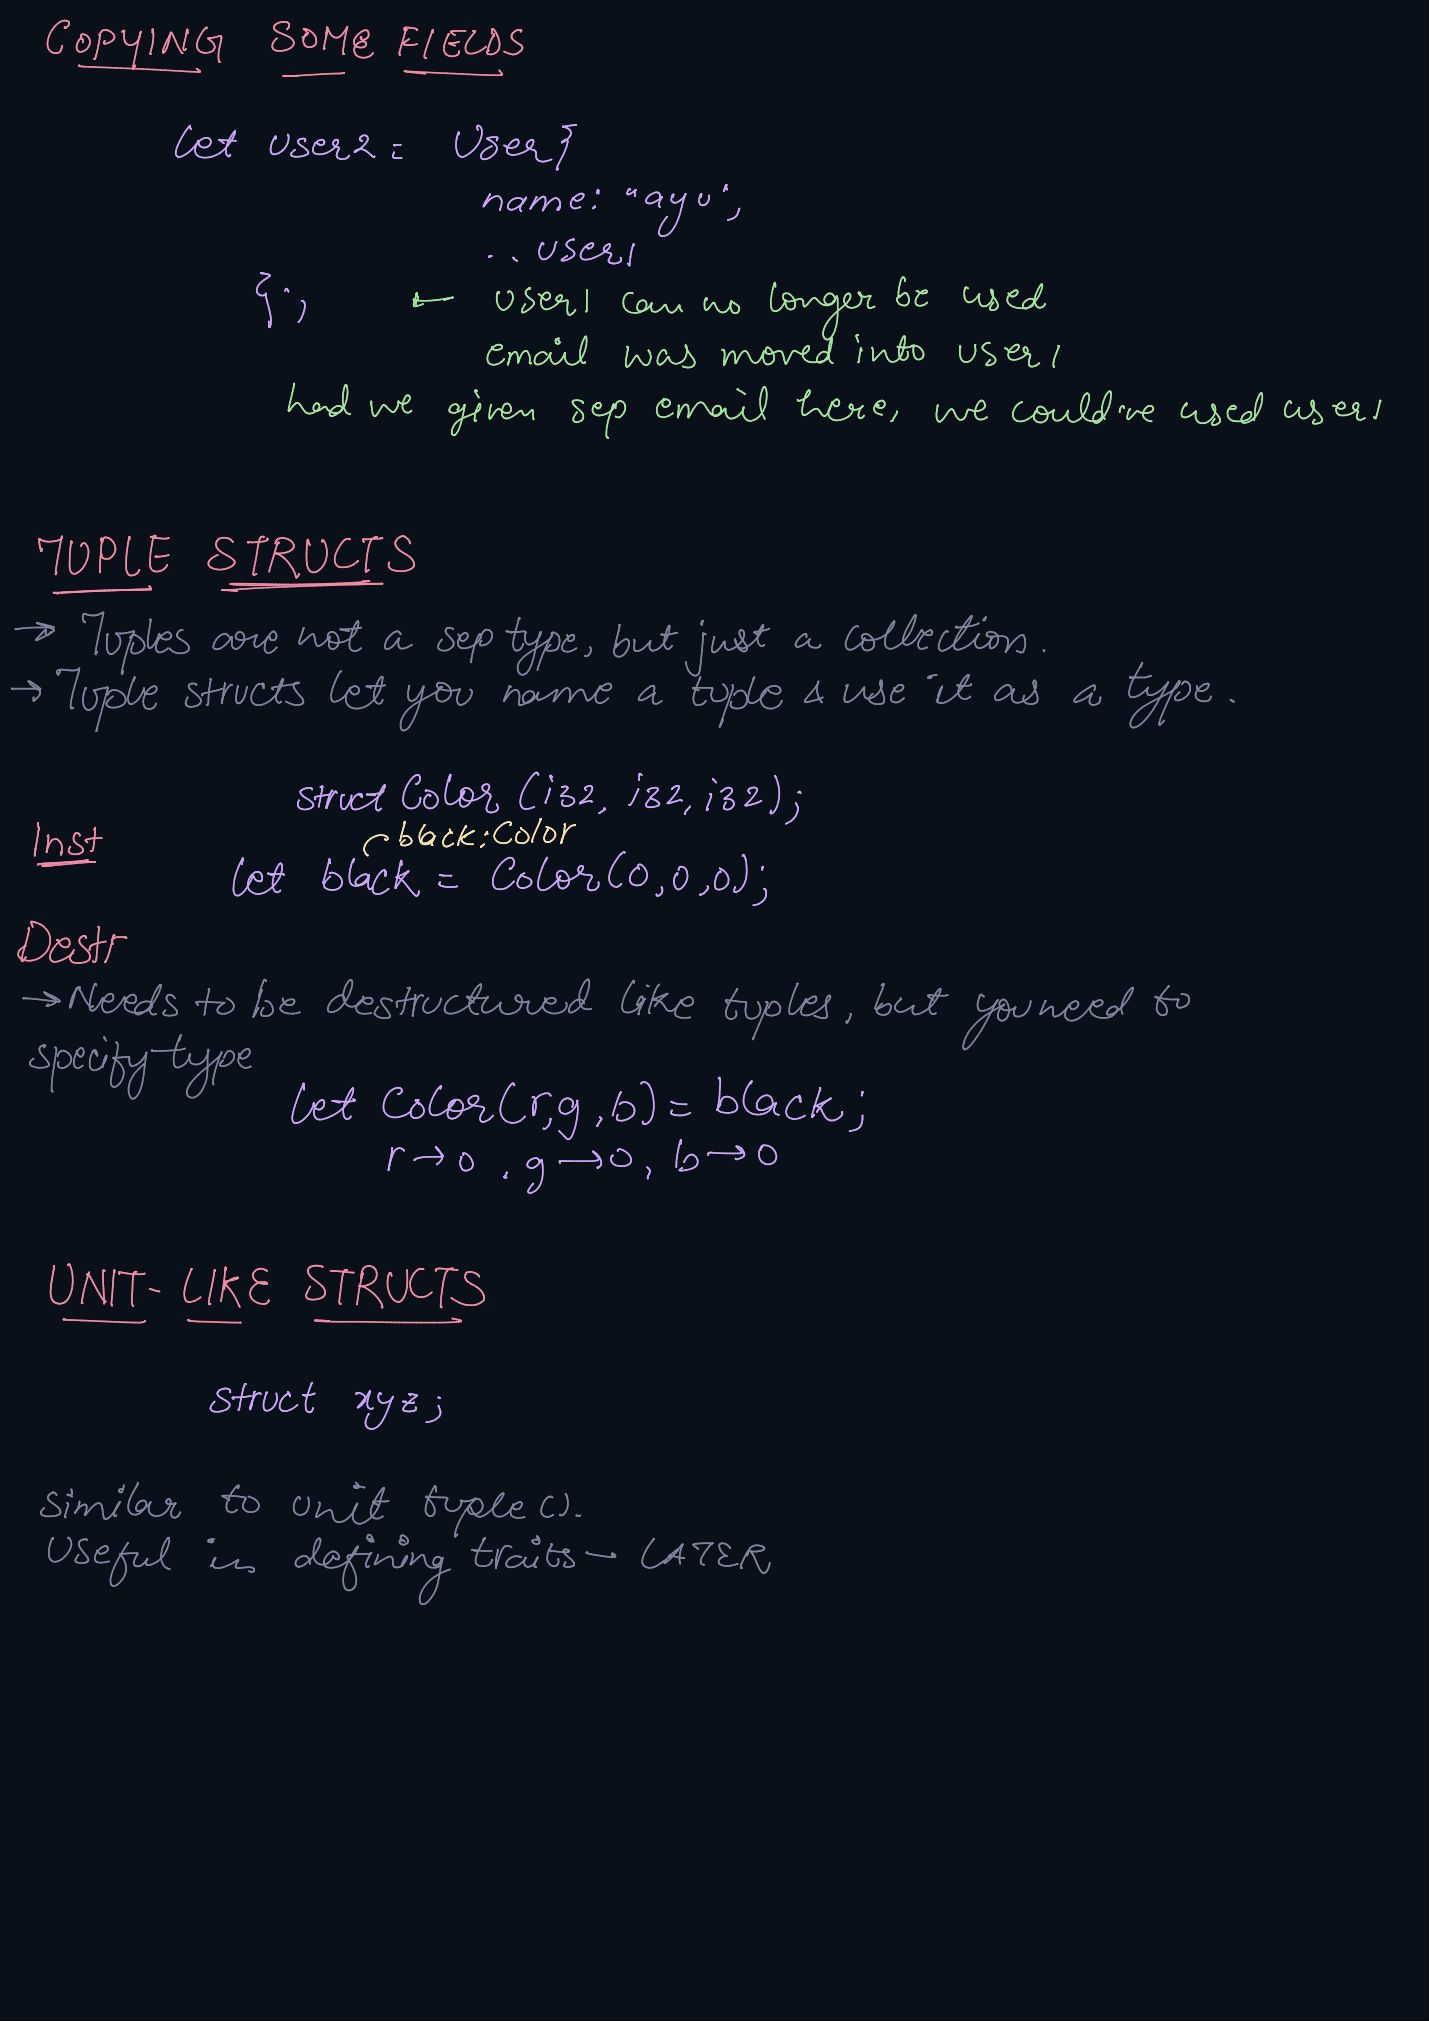 COPYING SOME FIELDS
let user2 = User{
name: "ayu",
..user1
};
← user1 can no longer be used
email was moved into user1
had we given sep email here, we could've used user1
TUPLE STRUCTS
→ Tuples are not a sep type, but just a collection.
→ Tuple structs let you name a tuple & use it as a type.
struct Color (i32, i32, i32);
Inst
black: Color
let black = Color(0,0,0);
Destr
→ Needs to be destructured like tuples, but you need to
specify type
let Color(r,g,b) = black;
r→0, g→0, b→0
UNIT-LIKE STRUCTS
struct xyz;
similar to unit tuple ().
Useful in defining traits - LATER